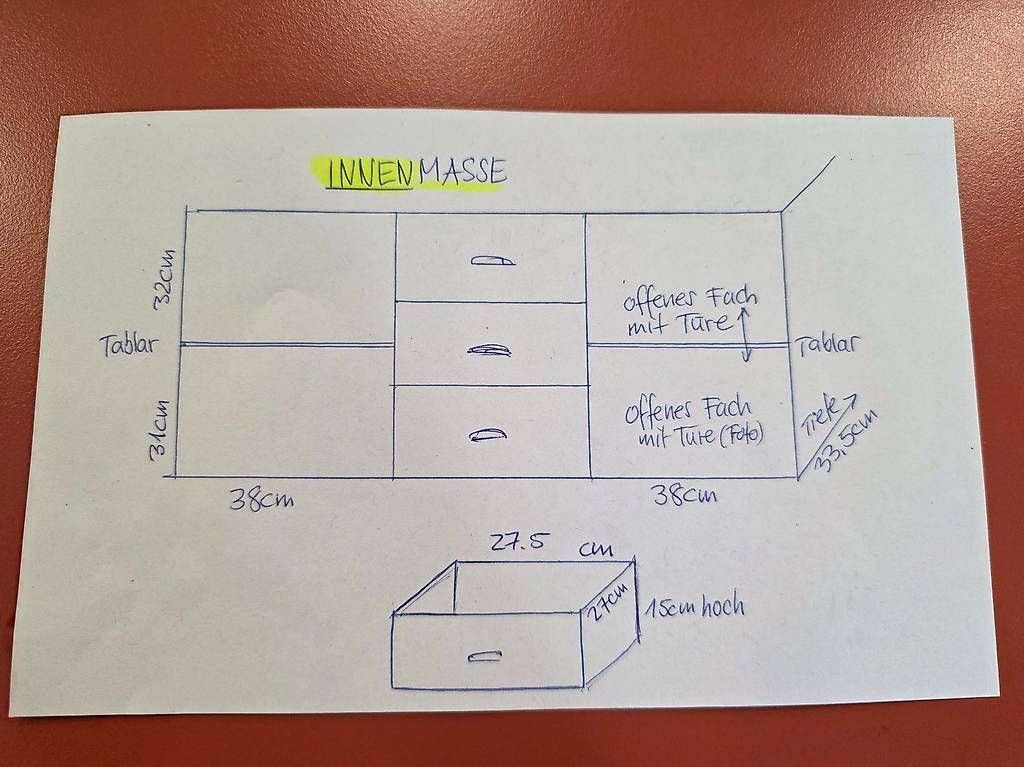 INNENMASSE
32cm
offenes Fach
mit Türe
Tablar
Tablar
31cm
offenes Fach
mit Türe (Foto)
Tiefe
33,5cm
38cm
38cm
27.5 cm
27cm
15cm hoch